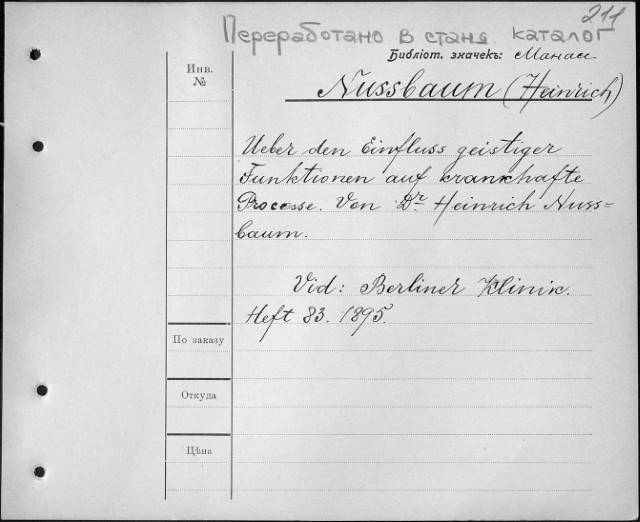 211
Переработано в станд. каталог
Библіот. значекъ:
Инв.
№
Nussbaum (Heinrich)
Ueber den Einfluss geistiger
Funktionen auf krankhafte
Processe. Von Dr Heinrich Nuss=
baum.
Vid: Berliner Klinik.
Heft 83. 1895.
По заказу
Откуда
Цѣна